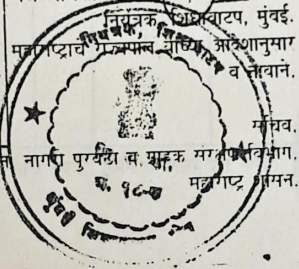 नियंत्रक, शिधावाटप, मुंबई.
महाराष्ट्राचे राज्यपाल यांच्या आदेशानुसार
व नावाने.
सचिव,
नागरी पुरवठा व ग्राहक संरक्षण विभाग,
महाराष्ट्र शासन.
नियंत्रक, शिधावाटप